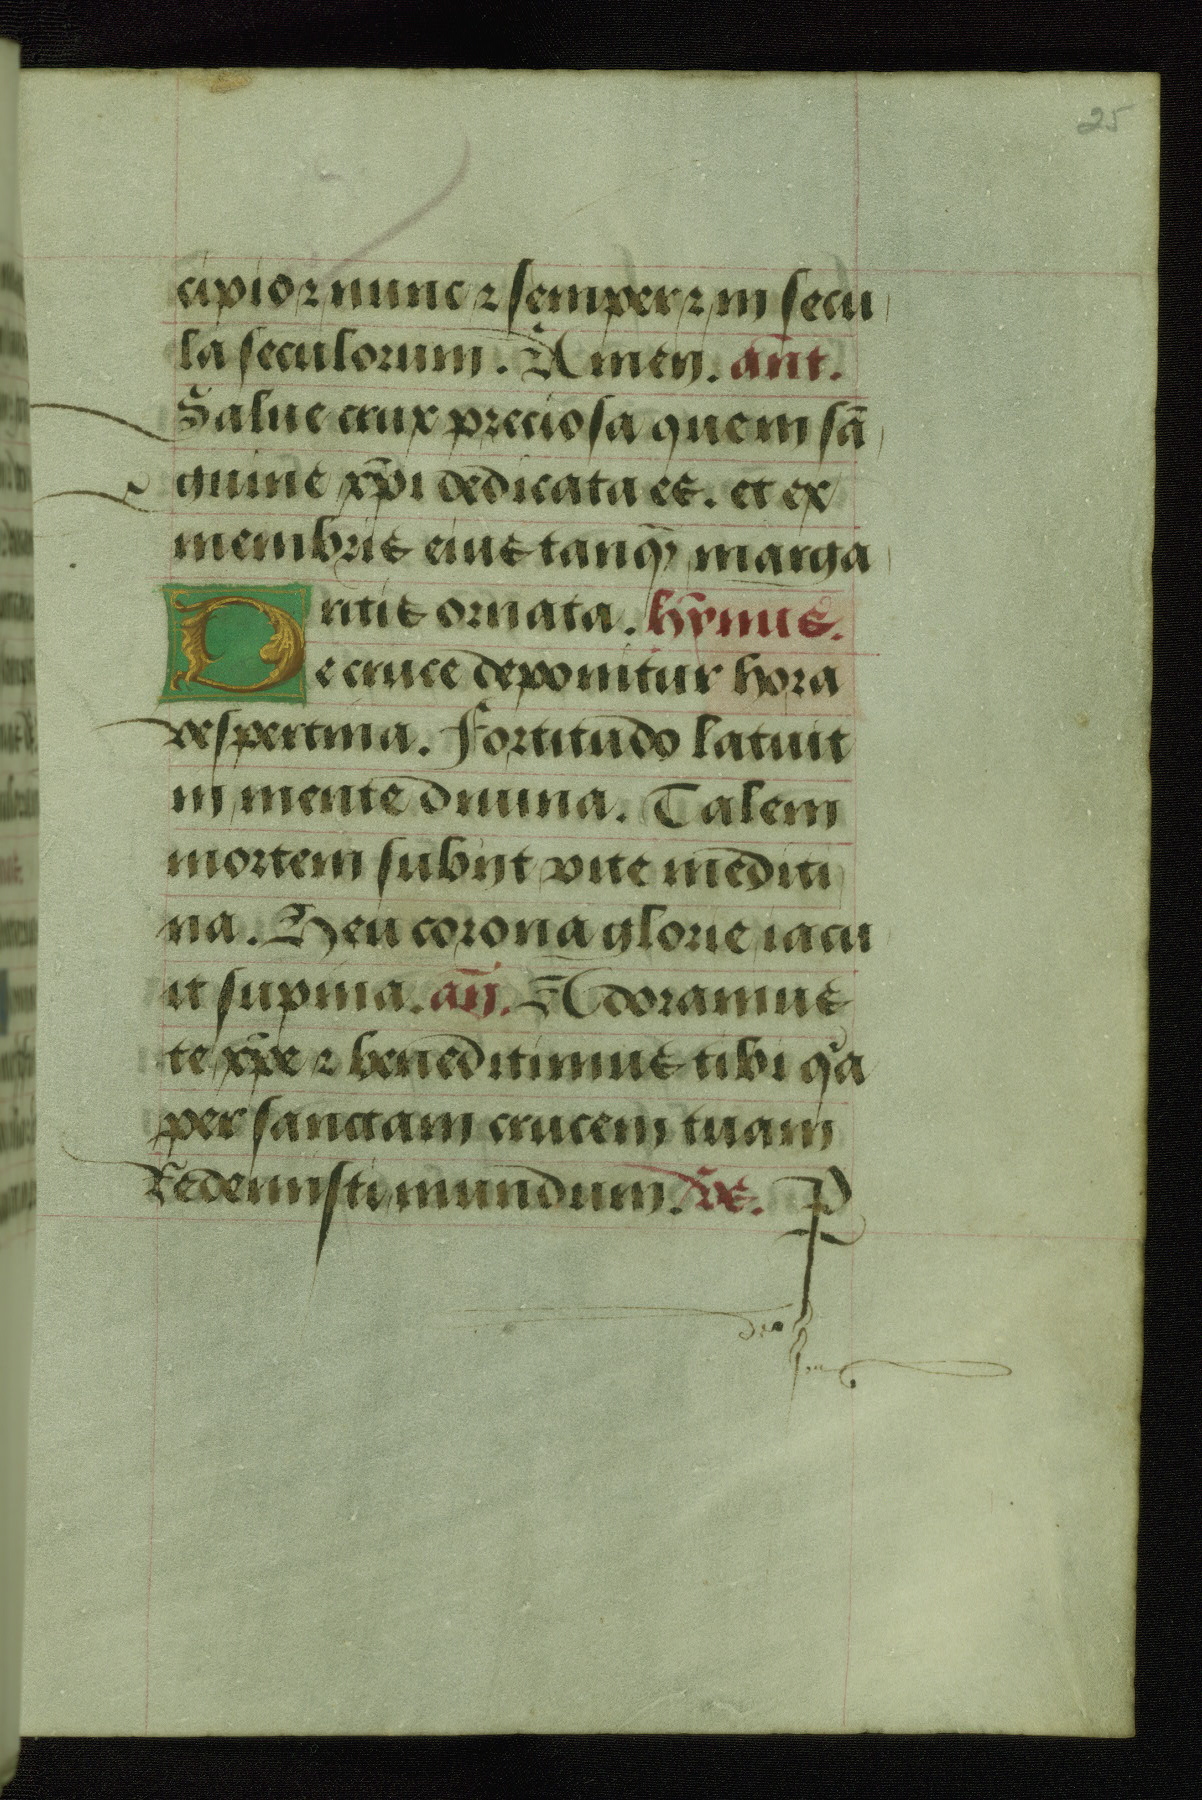 25
cipio ⁊ nunc ⁊ semper ⁊ in secu
la seculorum. Amen. añt.
Salue crux preciosa quem sā
guine xp̄i dedicata es. et ex
membris eius tanq̄ marga
ritis ornata. hȳmus.
De cruce deponitur hora
vespertina. Fortitudo latuit
in mente diuina. Talem
mortem subijt vite mediti
na. Heu corona glorie iacu
it supina. añ. Adoramus
te xp̄e ⁊ beneditimus tibi qa
per sanctam crucem tuam
Redemisti mundum. v̄s. P